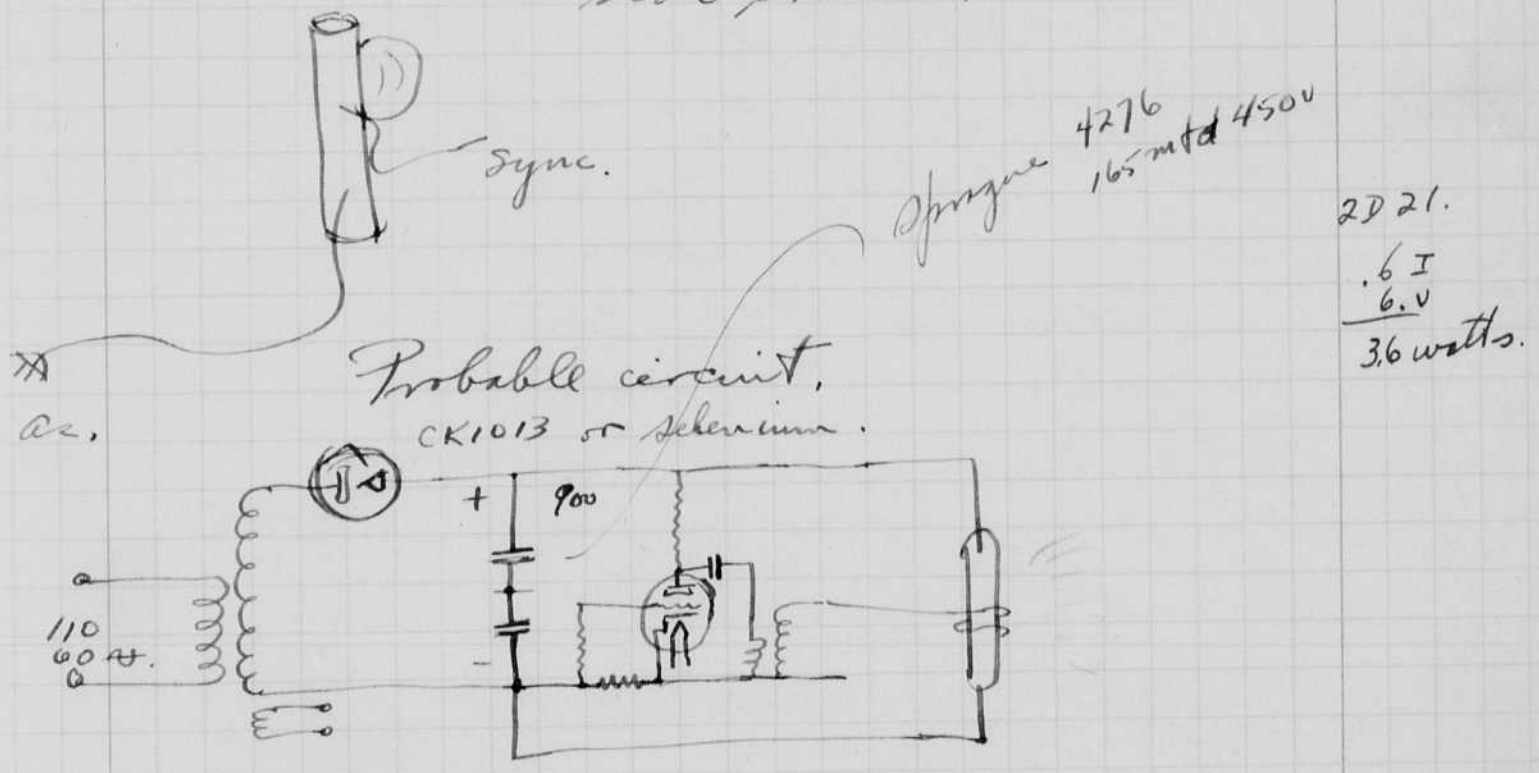 Sync.
Sprague 4276
165 mfd 450v
2D 21.
.6 I
6. v
3.6 watts.
Probable circuit.
ac.
CK1013 or selenium.
+ 900
110
60 ~.
-